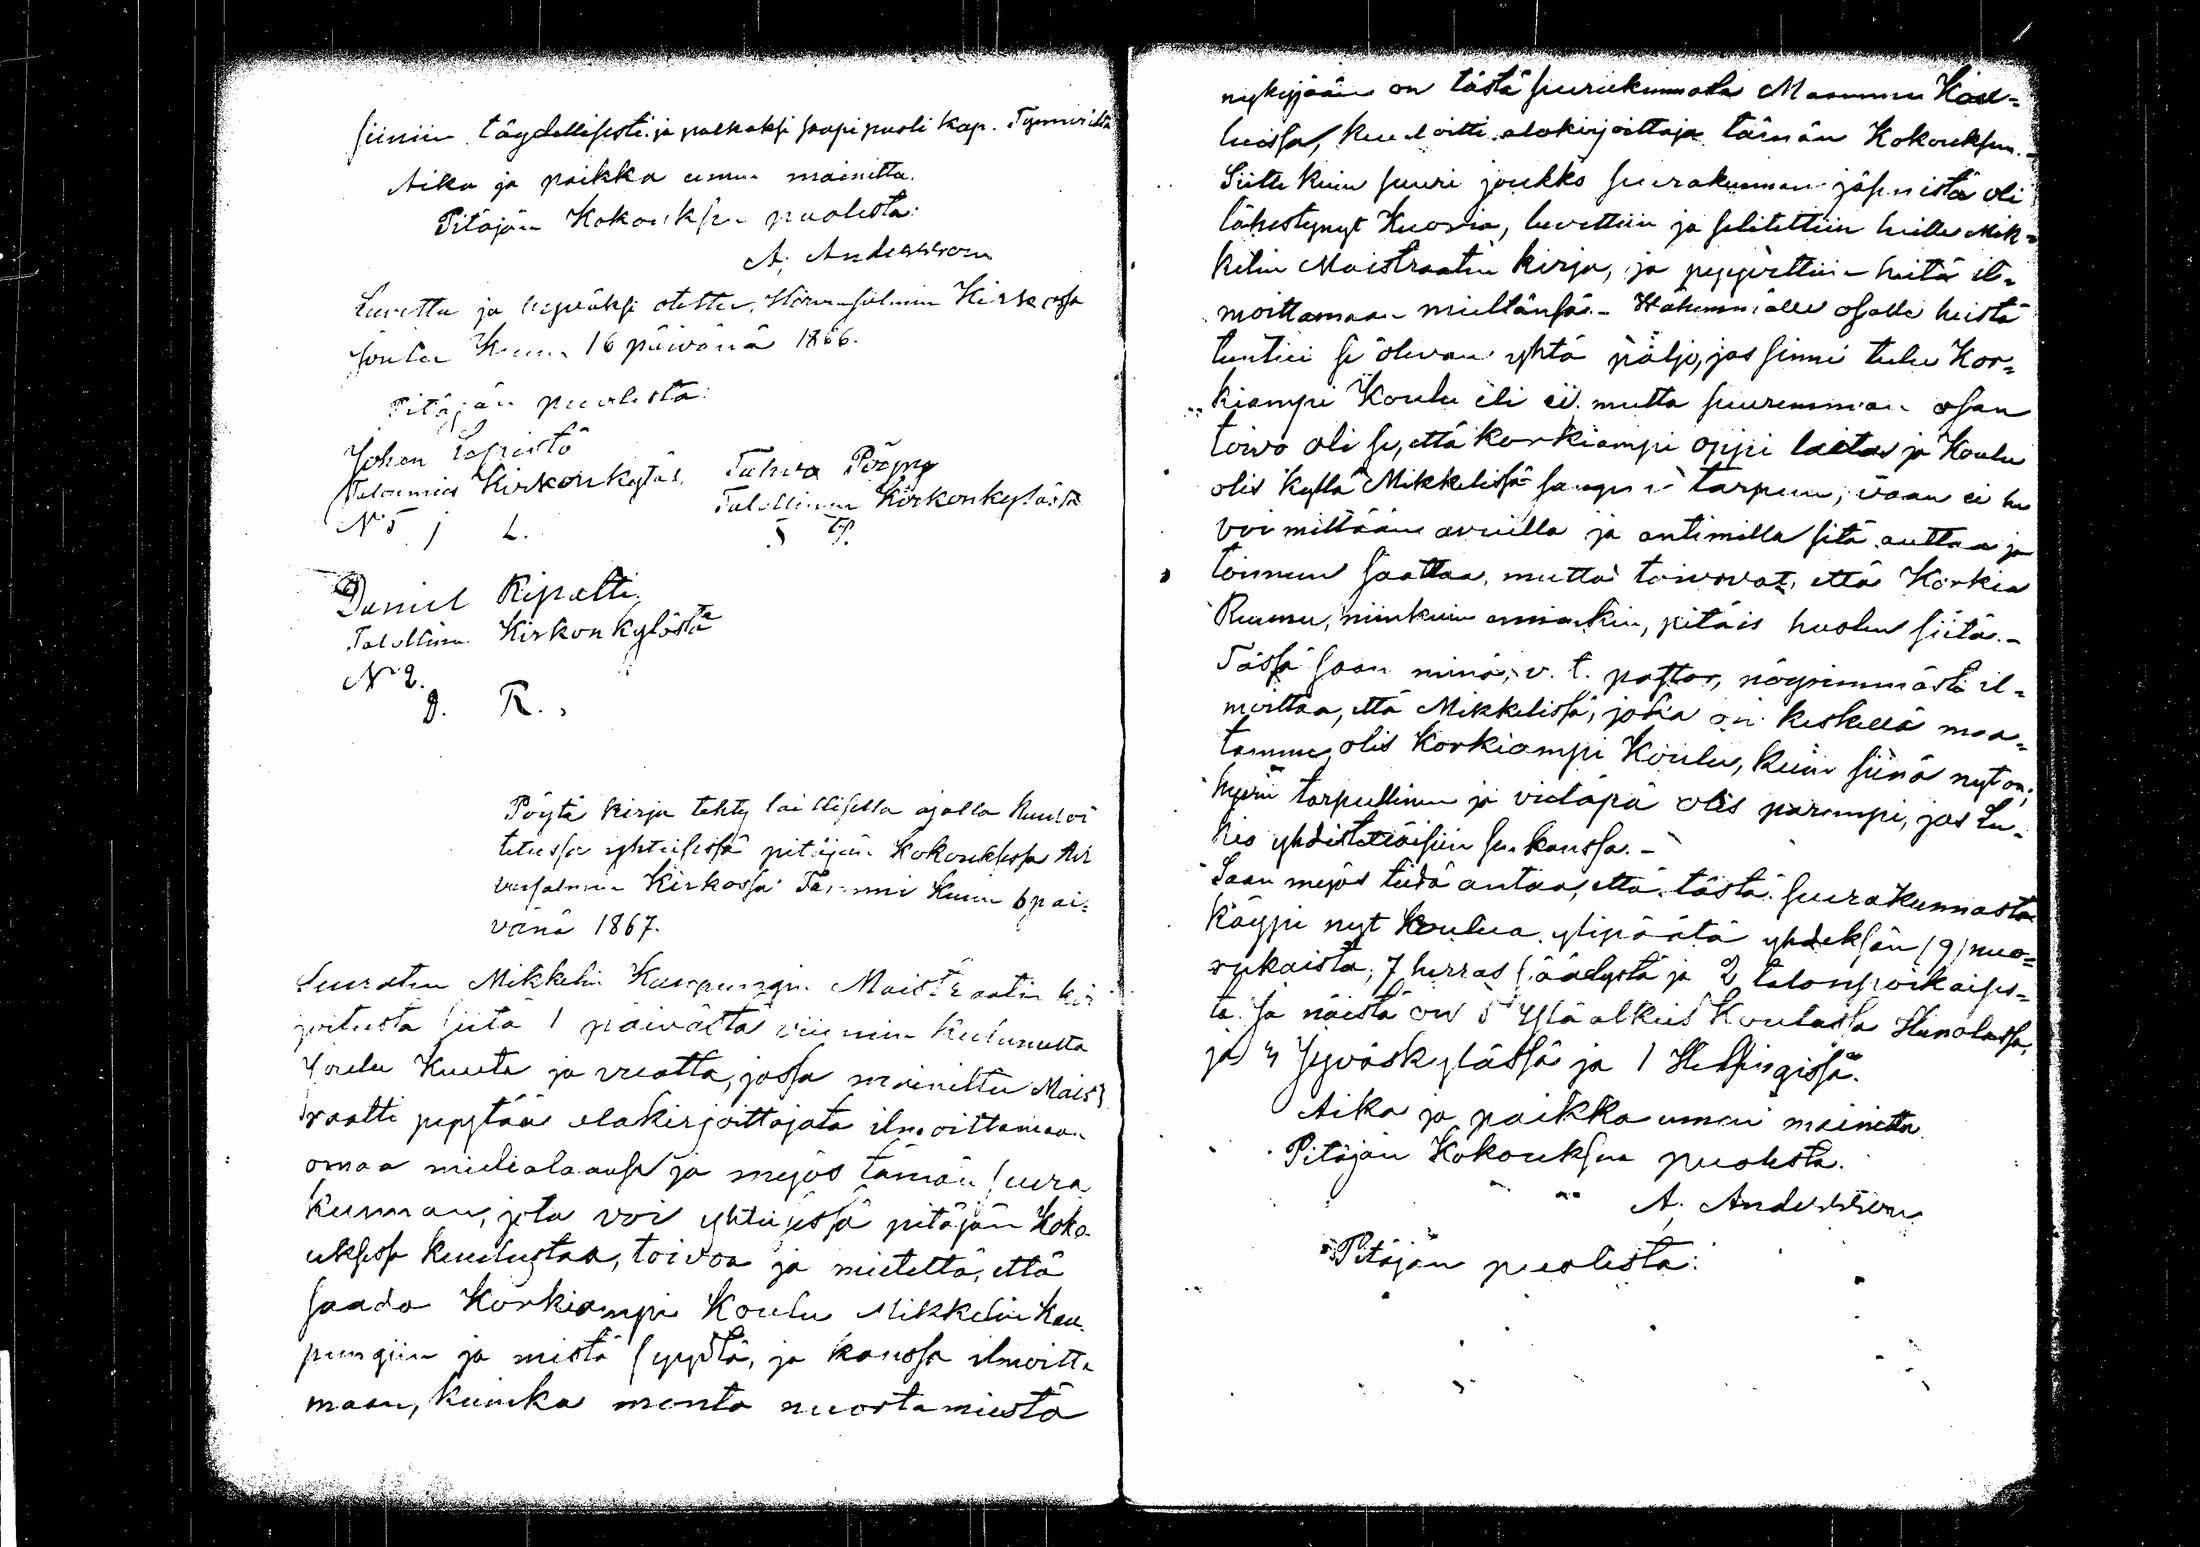 siiniin täydellisesti ja palkaksi saapi puoli kap. Tynnyriltä
Aika ja paikka ennen mainittu.
Pitäjän Kokouksen puolesta:
A. Andersson
Luvettu ja hyväksi otettu, Hirvensalmen Kirkossa
Joulu Kuun 16 päivänä 1866.
Pitäjän puolesta:
Johan
Talonmies Kirkonkyläs, Tahvo Pöyry
N:5 J L. Talollinen Kirkonkylästä
5 T.P.
Daniel Ripatti,
Talollinen Kirkonkylästä
N:2.
D. R.
Pöytä kirja tehty laillisella ajalla Kuuloi
tetussa yhteisessä pitäjän Kokouksessa Hir
vensalmen Kirkossa Tammi Kuun 6 päi=
vänä 1867.
Seuraten Mikkelin Kaupungin Maistraatin kir
joitusta siitä 1 päivästä viimein kulunutta
Joulu Kuuta ja vuotta, jossa mainittu Maist
raatti pyytää alakirjoittajata ilmoittamaan
omaa mielialaansa ja myös tämän seura
kunnan, jota voi yhteisessä pitäjän Koko
uksessa kuulustaa, toivoa ja mietettä, että
saada Korkiampi Koulu Mikkelin Kau
pungiin ja mistä syystä, ja kanssa ilmoitta
maan, kuinka monta nuorta miestä
nykyjään on tästä seurakunnasta Maamme Kou=
luissa, kuuloitti alakirjoittaja tämän Kokouksen.-
Siitte kuin suuri joukko seurakunnan jäsenistä oli
lähestynyt Kuoria, luvettiin ja selitettiin heille Mik=
kelin Maistraatin kirja, ja pyydettiin heitä il=
moittamaan mieltänsä.- Vähemmälle osalle heistä
tuntui se olevan yhtä paljo, jos sinne tulee Kor=
kiampi Koulu eli ei. mutta suuremman osan
toivo oli se, että korkiampi oppi laitos ja Koulu
olis kyllä Mikkelissä sangen tarpeen, vaan ei he
voi millään avuilla ja antimilla sitä auttaa ja
toimeen saattaa, mutta toivovat, että Korkia
Ruunu, niinkuin ennenkin, pitäis huolen siitä.-
Tässä saan minä, v. t. pastor, nöyrimmästi il=
moittaa, että Mikkelissä, joka on keskellä maa=
tamme, olis Korkiampi Koulu, kuin siinä nyt on,
hyvin tarpeellinen ja vieläpä olis parempi, jos Lu=
kio yhdistettäisiin sen kanssa.-
Saan myös tiedä antaa, että tästä seurakunnasta
käypi nyt koulua ylipäätä yhdeksän (9) nuo=
rukaista, 7 herras säädystä ja 2 talonpoikaises=
ta. Ja näistä on 5 Ylä alkeis Koulussa Heinolassa,
ja 3 Jyväskylässä ja 1 Helsingissä.
Aika ja paikka ennen mainittu
Pitäjän Kokouksen puolesta.
A. Andersson
Pitäjän puolesta: